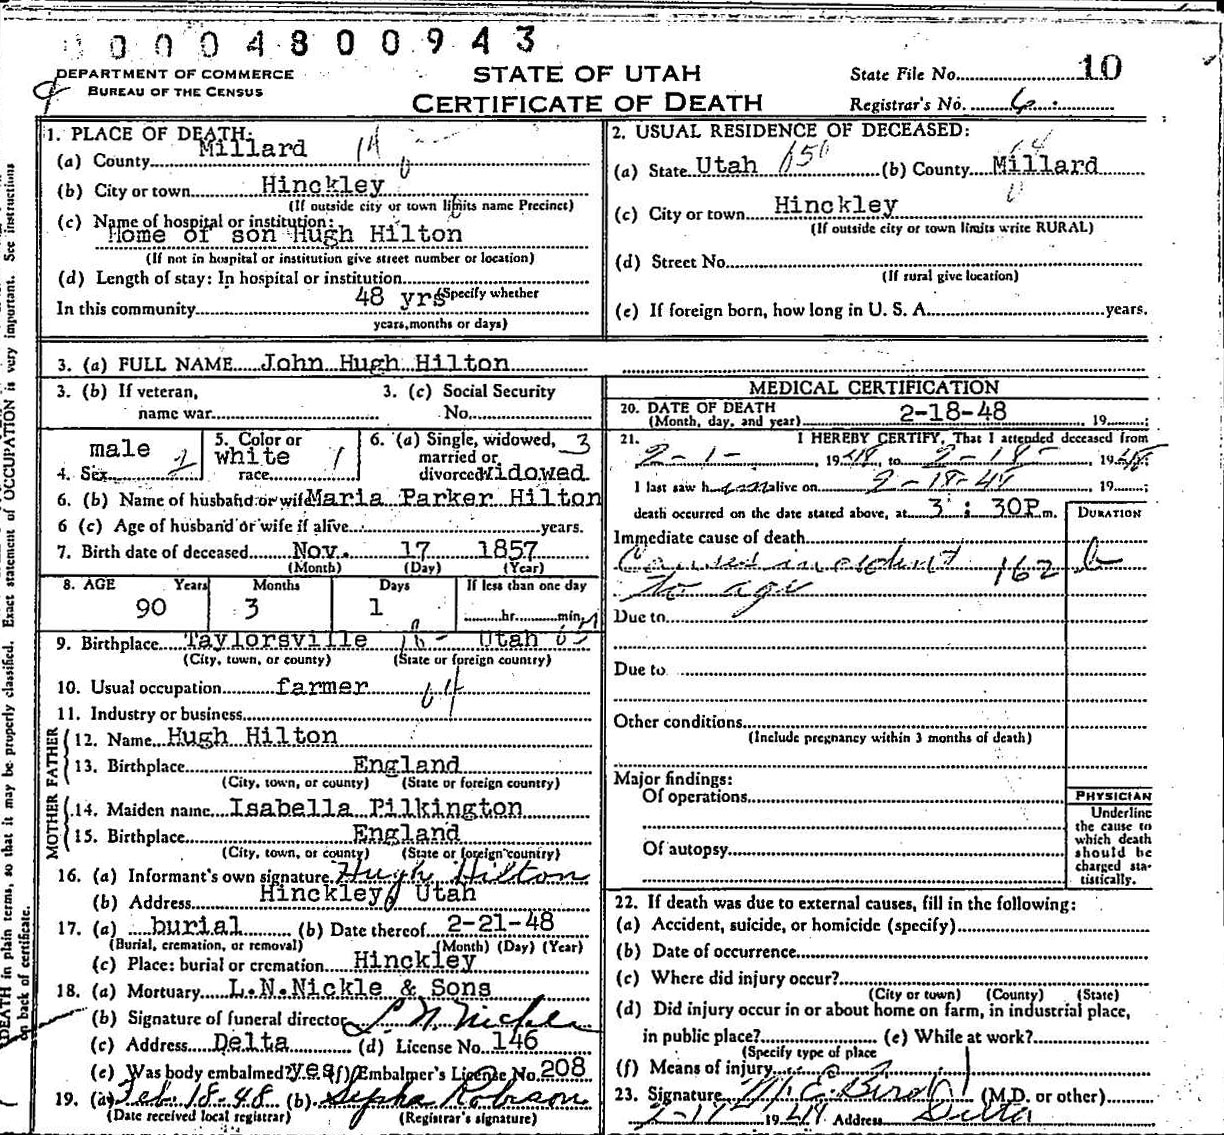 0 0 0 4 8 0 0 9 4 3
DEPARTMENT OF COMMERCE
BUREAU OF THE CENSUS
STATE OF UTAH
CERTIFICATE OF DEATH
State File No. 10
Registrar's No. 6
1. PLACE OF DEATH:
(a) County Millard
(b) City or town Hinckley
(If outside city or town limits name Precinct)
(c) Name of hospital or institution:
Home of son Hugh Hilton
(If not in hospital or institution give street number or location)
(d) Length of stay: In hospital or institution
48 yrs (Specify whether
In this community
years, months or days)
2. USUAL RESIDENCE OF DECEASED:
(a) State Utah (b) County Millard
(c) City or town Hinckley
(If outside city or town limits write RURAL)
(d) Street No.
(If rural give location)
(e) If foreign born, how long in U. S. A. years.
3. (a) FULL NAME John Hugh Hilton
3. (b) If veteran, 3. (c) Social Security
name war No.
male 5. Color or 6. (a) Single, widowed, 3
white married or
4. Sex race divorced widowed
6. (b) Name of husband or wife Maria Parker Hilton
6 (c) Age of husband or wife if alive years.
7. Birth date of deceased Nov. 17 1857
(Month) (Day) (Year)
8. AGE Years Months Days If less than one day
90 3 1 hr. min.
9. Birthplace Taylorsville Utah
(City, town, or county) (State or foreign country)
10. Usual occupation farmer
11. Industry or business
FATHER
12. Name Hugh Hilton
13. Birthplace England
(City, town, or county) (State or foreign country)
MOTHER
14. Maiden name Isabella Pilkington
15. Birthplace England
(City, town, or county) (State or foreign country)
16. (a) Informant's own signature Hugh Hilton
(b) Address Hinckley Utah
17. (a) burial (b) Date thereof 2-21-48
(Burial, cremation, or removal) (Month) (Day) (Year)
(c) Place: burial or cremation Hinckley
18. (a) Mortuary L.N.Nickle & Sons
(b) Signature of funeral director L N Nickle
(c) Address Delta (d) License No. 146
(e) Was body embalmed? yes (f) Embalmer's License No. 208
19. (a) Feb. 18-48 (b)
(Date received local registrar) (Registrar's signature)
MEDICAL CERTIFICATION
20. DATE OF DEATH 2-18-48
(Month, day, and year) 19
21. I HEREBY CERTIFY, That I attended deceased from
2-1- 1948 to 2-18- 1948
I last saw him alive on 2-18-48 19
death occurred on the date stated above, at 3:30P m.
DURATION
Immediate cause of death
162 b
to age
Due to
Due to
Other conditions
(Include pregnancy within 3 months of death)
Major findings:
Of operations
Of autopsy
PHYSICIAN
Underline
the cause to
which death
should be
charged sta-
tistically.
22. If death was due to external causes, fill in the following:
(a) Accident, suicide, or homicide (specify)
(b) Date of occurrence
(c) Where did injury occur?
(City or town) (County) (State)
(d) Did injury occur in or about home on farm, in industrial place,
in public place? (e) While at work?
(Specify type of place
(f) Means of injury
23. Signature (M.D. or other)
19 Address Delta
DEATH in plain terms, so that it may be properly classified. Exact statement of OCCUPATION is very important. See instructions
on back of certificate.